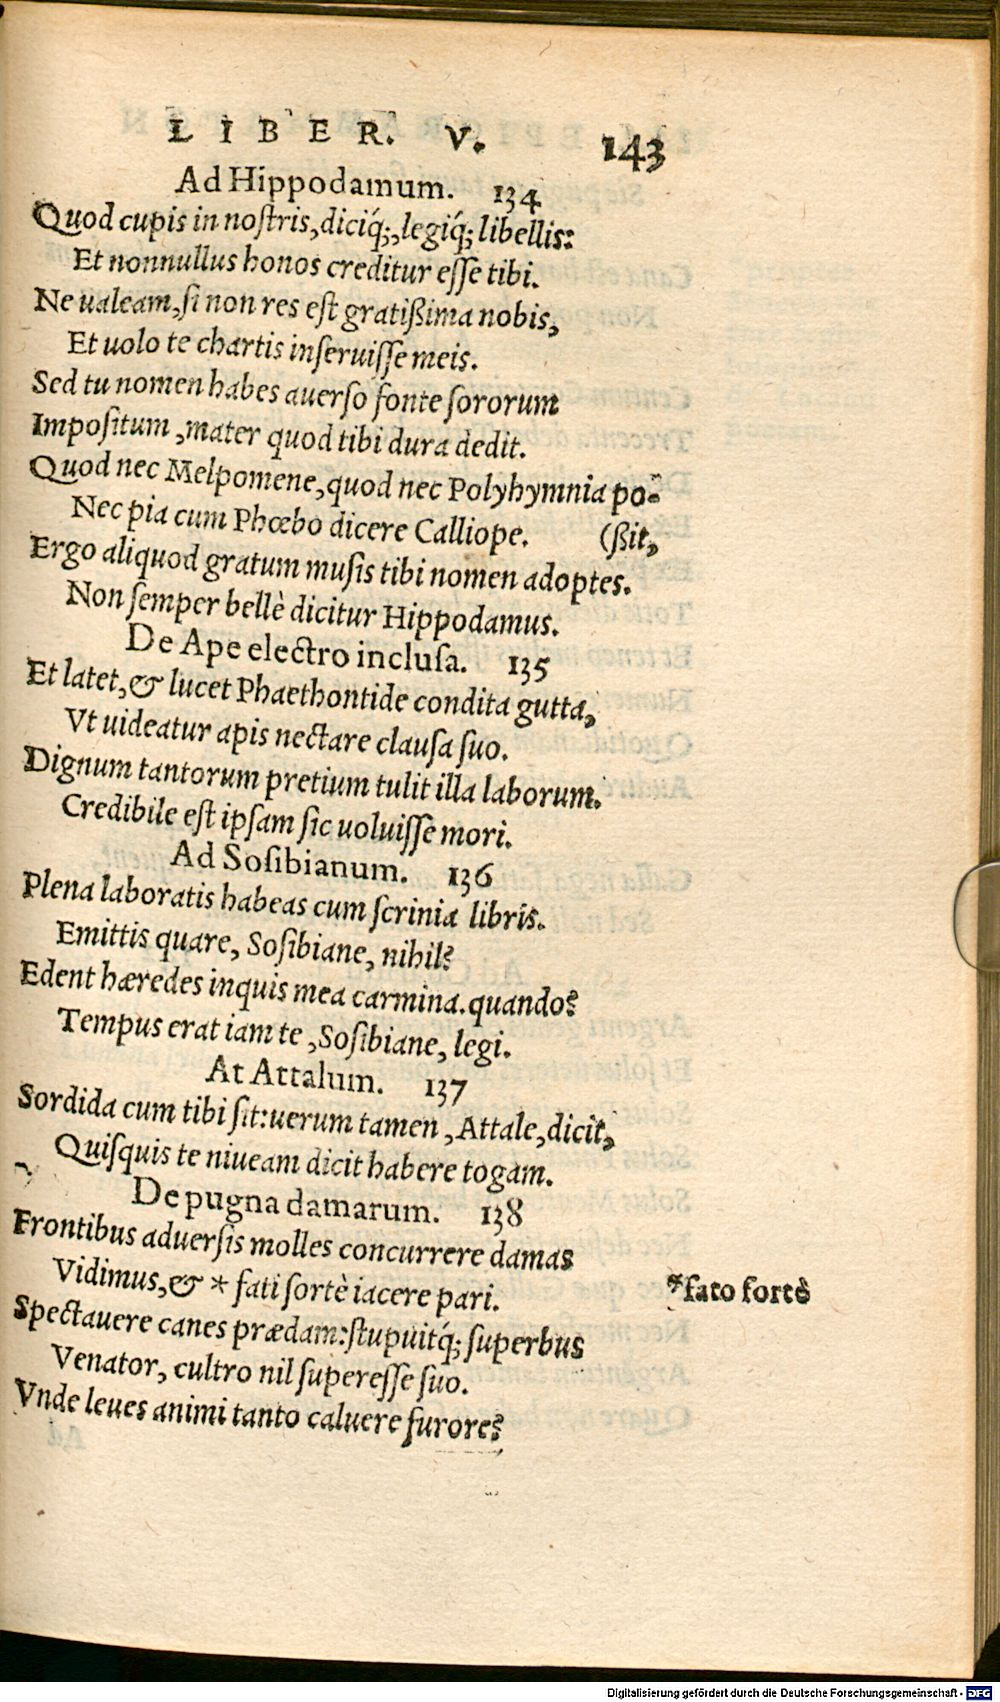 LIBER. V. 143
Ad Hippodamum. 134
Quod cupis in noſtris, diciq́;, legiq́; libellis:
Et nonnullus honos creditur eſſe tibi.
Ne ualeam, ſi non res eſt gratißima nobis,
Et uolo te chartis inſeruiſſe meis.
Sed tu nomen habes auerſo fonte ſororum
Impoſitum, mater quod tibi dura dedit.
Quod nec Melpomene, quod nec Polyhymnia po-
Nec pia cum Phœbo dicere Calliope. (ßit,
Ergo aliquod gratum muſis tibi nomen adoptes.
Non ſemper bellè dicitur Hippodamus.
De Ape electro incluſa. 135
Et latet, & lucet Phaethontide condita gutta,
Vt uideatur apis nectare clauſa ſuo.
Dignum tantorum pretium tulit illa laborum.
Credibile eſt ipſam ſic uoluiſſe mori.
Ad Soſibianum. 136
Plena laboratis habeas cum ſcrinia libris.
Emittis quare, Soſibiane, nihil?
Edent hæredes inquis mea carmina. quando?
Tempus erat iam te, Soſibiane, legi.
At Attalum. 137
Sordida cum tibi ſit: uerum tamen, Attale, dicit,
Quiſquis te niueam dicit habere togam.
De pugna damarum. 138
Frontibus aduerſis molles concurrere damas
Vidimus, & * fati ſortè iacere pari.
*fato fortè
Spectauere canes prædam: ſtupuitq́; ſuperbus
Venator, cultro nil ſupereſſe ſuo.
Vnde leues animi tanto caluere furore?
Digitalisierung gefördert durch die Deutsche Forschungsgemeinschaft - DFG